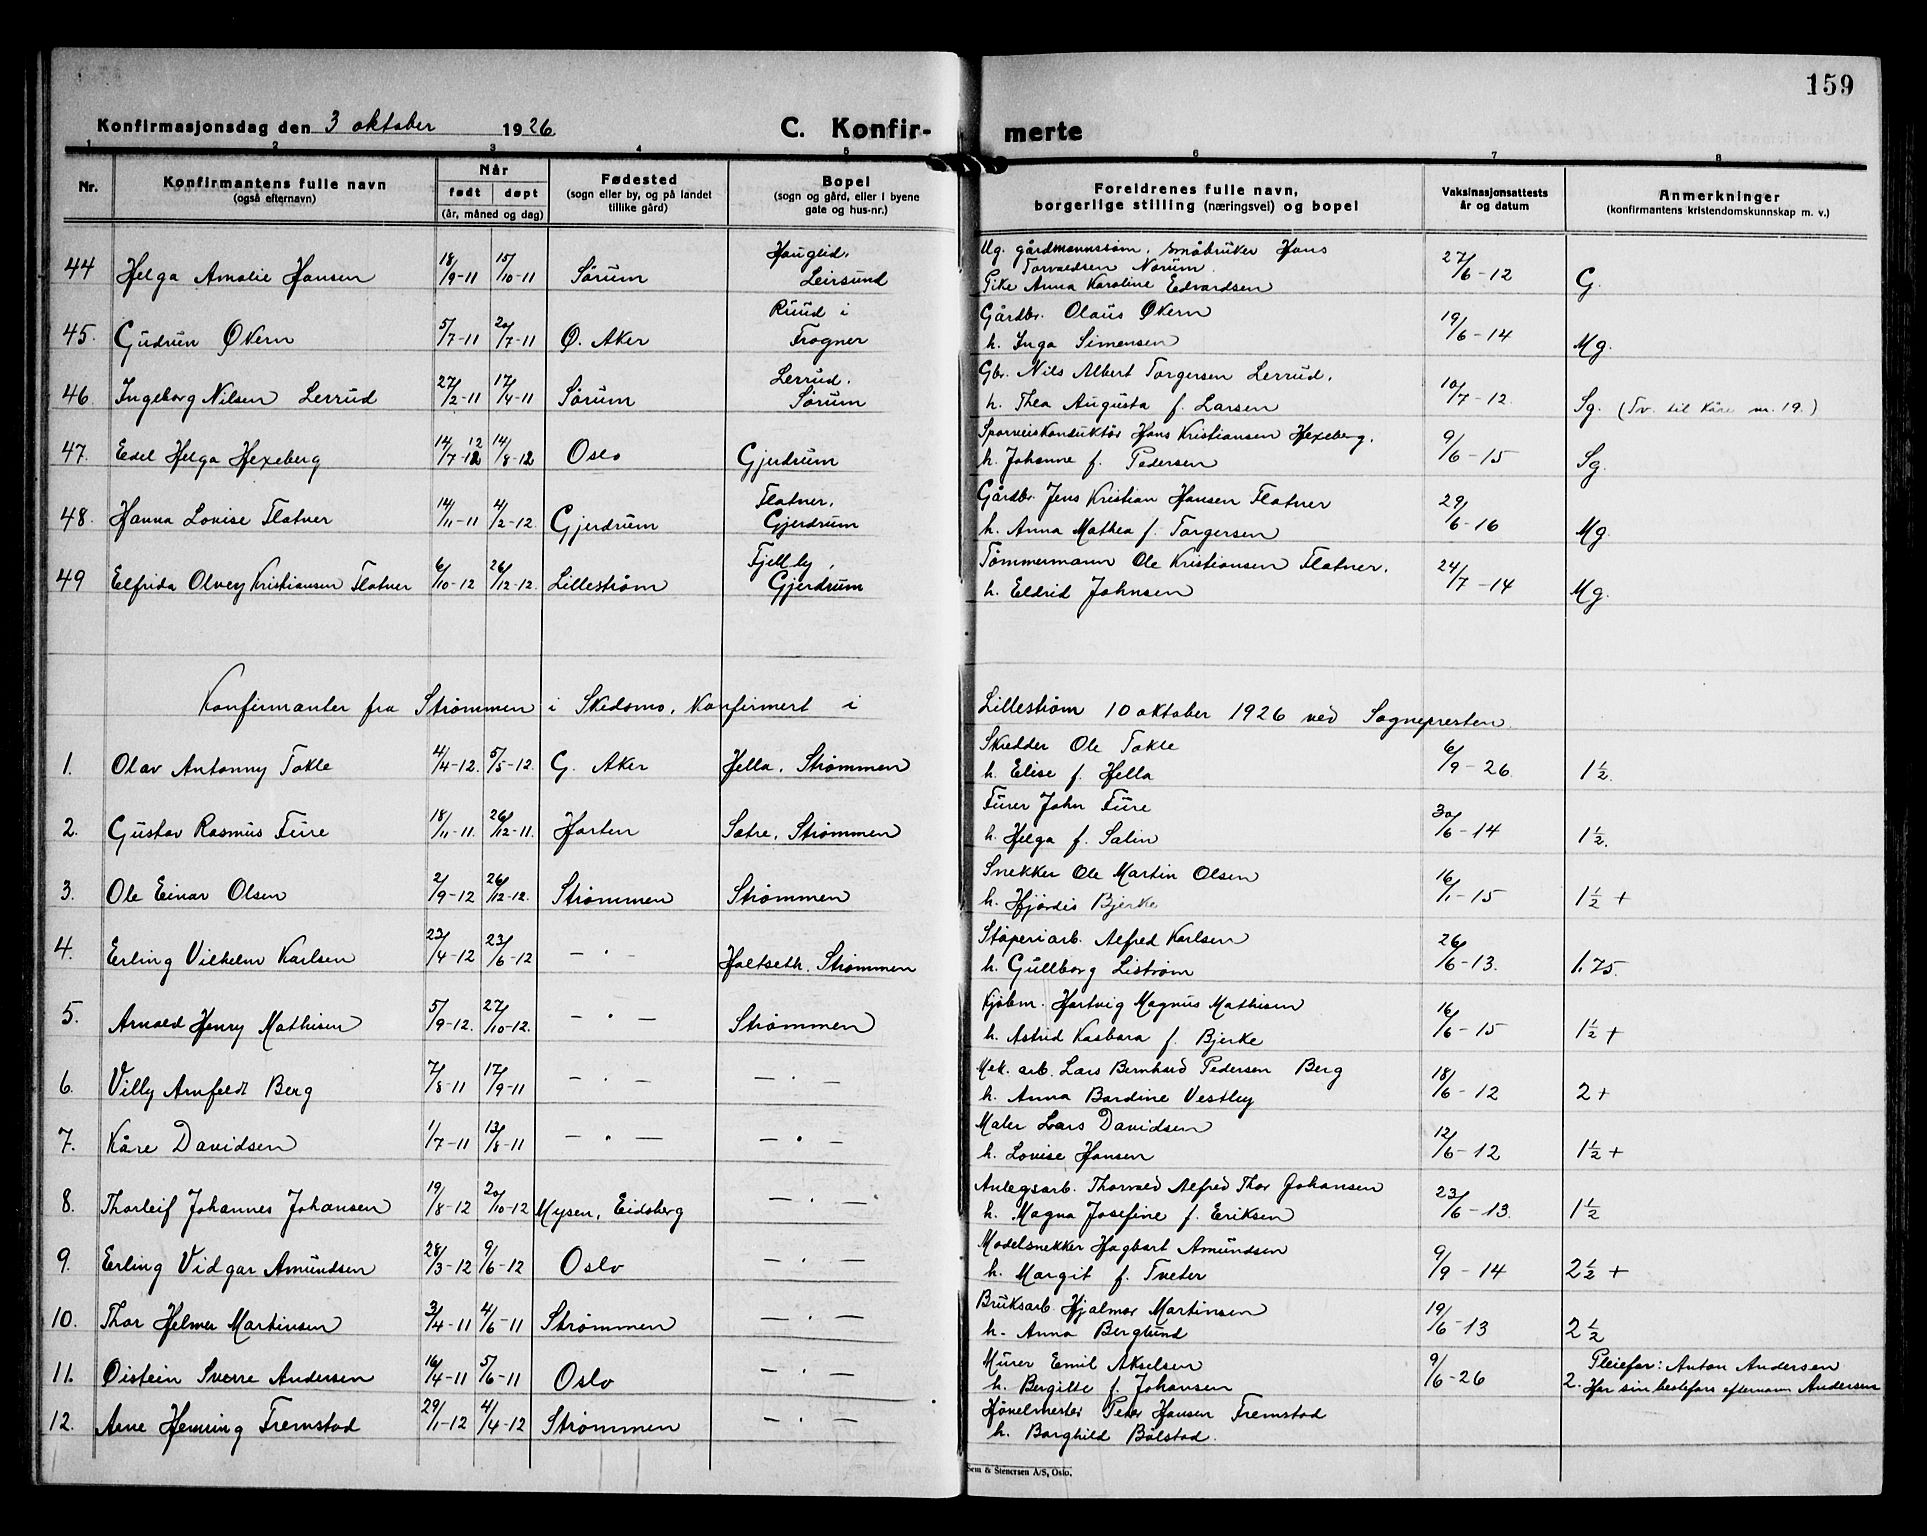 159
Konfirmasjonsdag den 3 oktober 1926 C. Konfirmerte
1 2 3 4 5 6 7 8
Nr. Konfirmantens fulle navn (også efternavn) Når født døpt (år, måned og dag) Fødested (sogn eller by, og på landet tillike gård) Bopel (sogn og gård, eller i byene gate og hus-nr.) Foreldrenes fulle navn, borgerlige stilling (næringsvei) og bopel Vaksinasjonsattests år og datum Anmerkninger (konfirmantens kristendomskunnskap m. v.)
44 Helga Amalie Hansen 18/9-11 15/10-11 Sørum Hauglid, Leirsund Ug. gårdmannssøn, småbruker Hans Torvaldsen Norum. Pike Anna Karoline Edvardsen 27/6-12 G.
45. Gudrun Økern 5/7-11 20/7-11 Ø. Aker Ruud i Frogner Gårdbr. Olaus Økern h. Inga Simensen 19/6-14 Mg.
46 Ingeborg Nilsen Lerrud 27/2-11 17/4-11 Sørum Lerrud, Sørum Gbr. Nils Albert Torgersen Lerrud, h. Thea Augusta f. Larsen 10/7-12 Sg. (Tv. til Kåre nr. 19.)
47. Edel Helga Hexeberg 14/7-12 12 14/8-12 Oslo Gjerdrum Sporveiskonduktør Hans Kristiansen Hexeberg. h. Johanne f. Pedersen 9/6-15 Sg.
48. Hanna Lovise Flatner 14/11-11 4/2-12. Gjerdrum Flatner, Gjerdrum Gårdbr. Jens Kristian Hansen Flatner h. Anna Mathea f. Torgersen 29/6-16 Mg.
49 Elfrida Olvey Kristiansen Flatner 6/10-12 26/12-12. Lillestrøm Fjellby, Gjerdrum Tømmermann Ole Kristiansen Flatner. h. Eldrid Johnsen 24/7-14 Mg.
Konfirmanter fra Strømmen i Skedsmo, konfirmert i Lillestrøm 10 oktober 1926 ved Sognepresten.
1. Olav Antonny Takle 4/4-12. 5/5-12. G. Aker Hella, Strømmen Skredder Ole Takle h. Elise f. Hella 6/9-26. 1½.
2. Gustav Rasmus Fure 18/11-11. 26/12-11. Horten Sætre, Strømmen Furer John Fure h. Helga f. Salin 30/6-14 1½.
3. Ole Einar Olsen 2/9-12 26/12-12. Strømmen Strømmen Snekker Ole Martin Olsen h. Hjørdis Bjerke 16/1-15 1½ +
4. Erling Vilhelm Karlsen 23/4-12 23/6-12 - " - Holtseth. Strømmen Støperiarb. Alfred Karlsen h. Gullborg Liström 26/6-13. 1.75.
5. Arnold Henry Mathisen 5/9-12. 27/10-12. - " - Strømmen Kjøbm. Hartvig Magnus Mathisen h. Astrid Kasbara f. Bjerke 16/6-15 1½ +
6. Villy Arnfeldt Berg 7/8-11 17/9-11 - " - - " - Mek. arb. Lars Bernhard Pedersen Berg h. Anna Bardine Vestley 18/6-12 2 +
7. Kåre Davidsen 1/7-11 13/8-11 - " - - " - Maler Lars Davidsen h. Lovise Hansen 12/6-12 1½ +
8. Thorleif Johannes Johansen 19/8-12 20/10-12 Mysen, Eidsberg - " - Anlegsarb. Thorvald Alfred Thor Johansen h. Magna Josefine f. Eriksen 23/6-13. 1½
9. Erling Vidgar Amundsen 28/3-12 9/6-12 Oslo - " - Modelsnekker Hagbart Amundsen h. Margit f. Tveter 9/9-14 2½ +
10. Thor Helmer Martinsen 3/4-11 4/6-11 Strømmen - " - Bruksarb. Hjalmar Martinsen h. Anna Berglund 19/6-13 2½
11. Øistein Sverre Andersen 16/4-11 5/6-11 Oslo - " - Murer Emil Akselsen h. Bergitte f. Johansen 9/6-26 2. Pleiefar: Anton Andersen Har sin bestefars efternavn Andersen
12. Arne Henning Fremstad 29/1-12 4/4-12 Strømmen - " - Høvelmester Peter Hansen Fremstad h. Borghild Bølstad.
Sem & Stenersen A/S, Oslo.